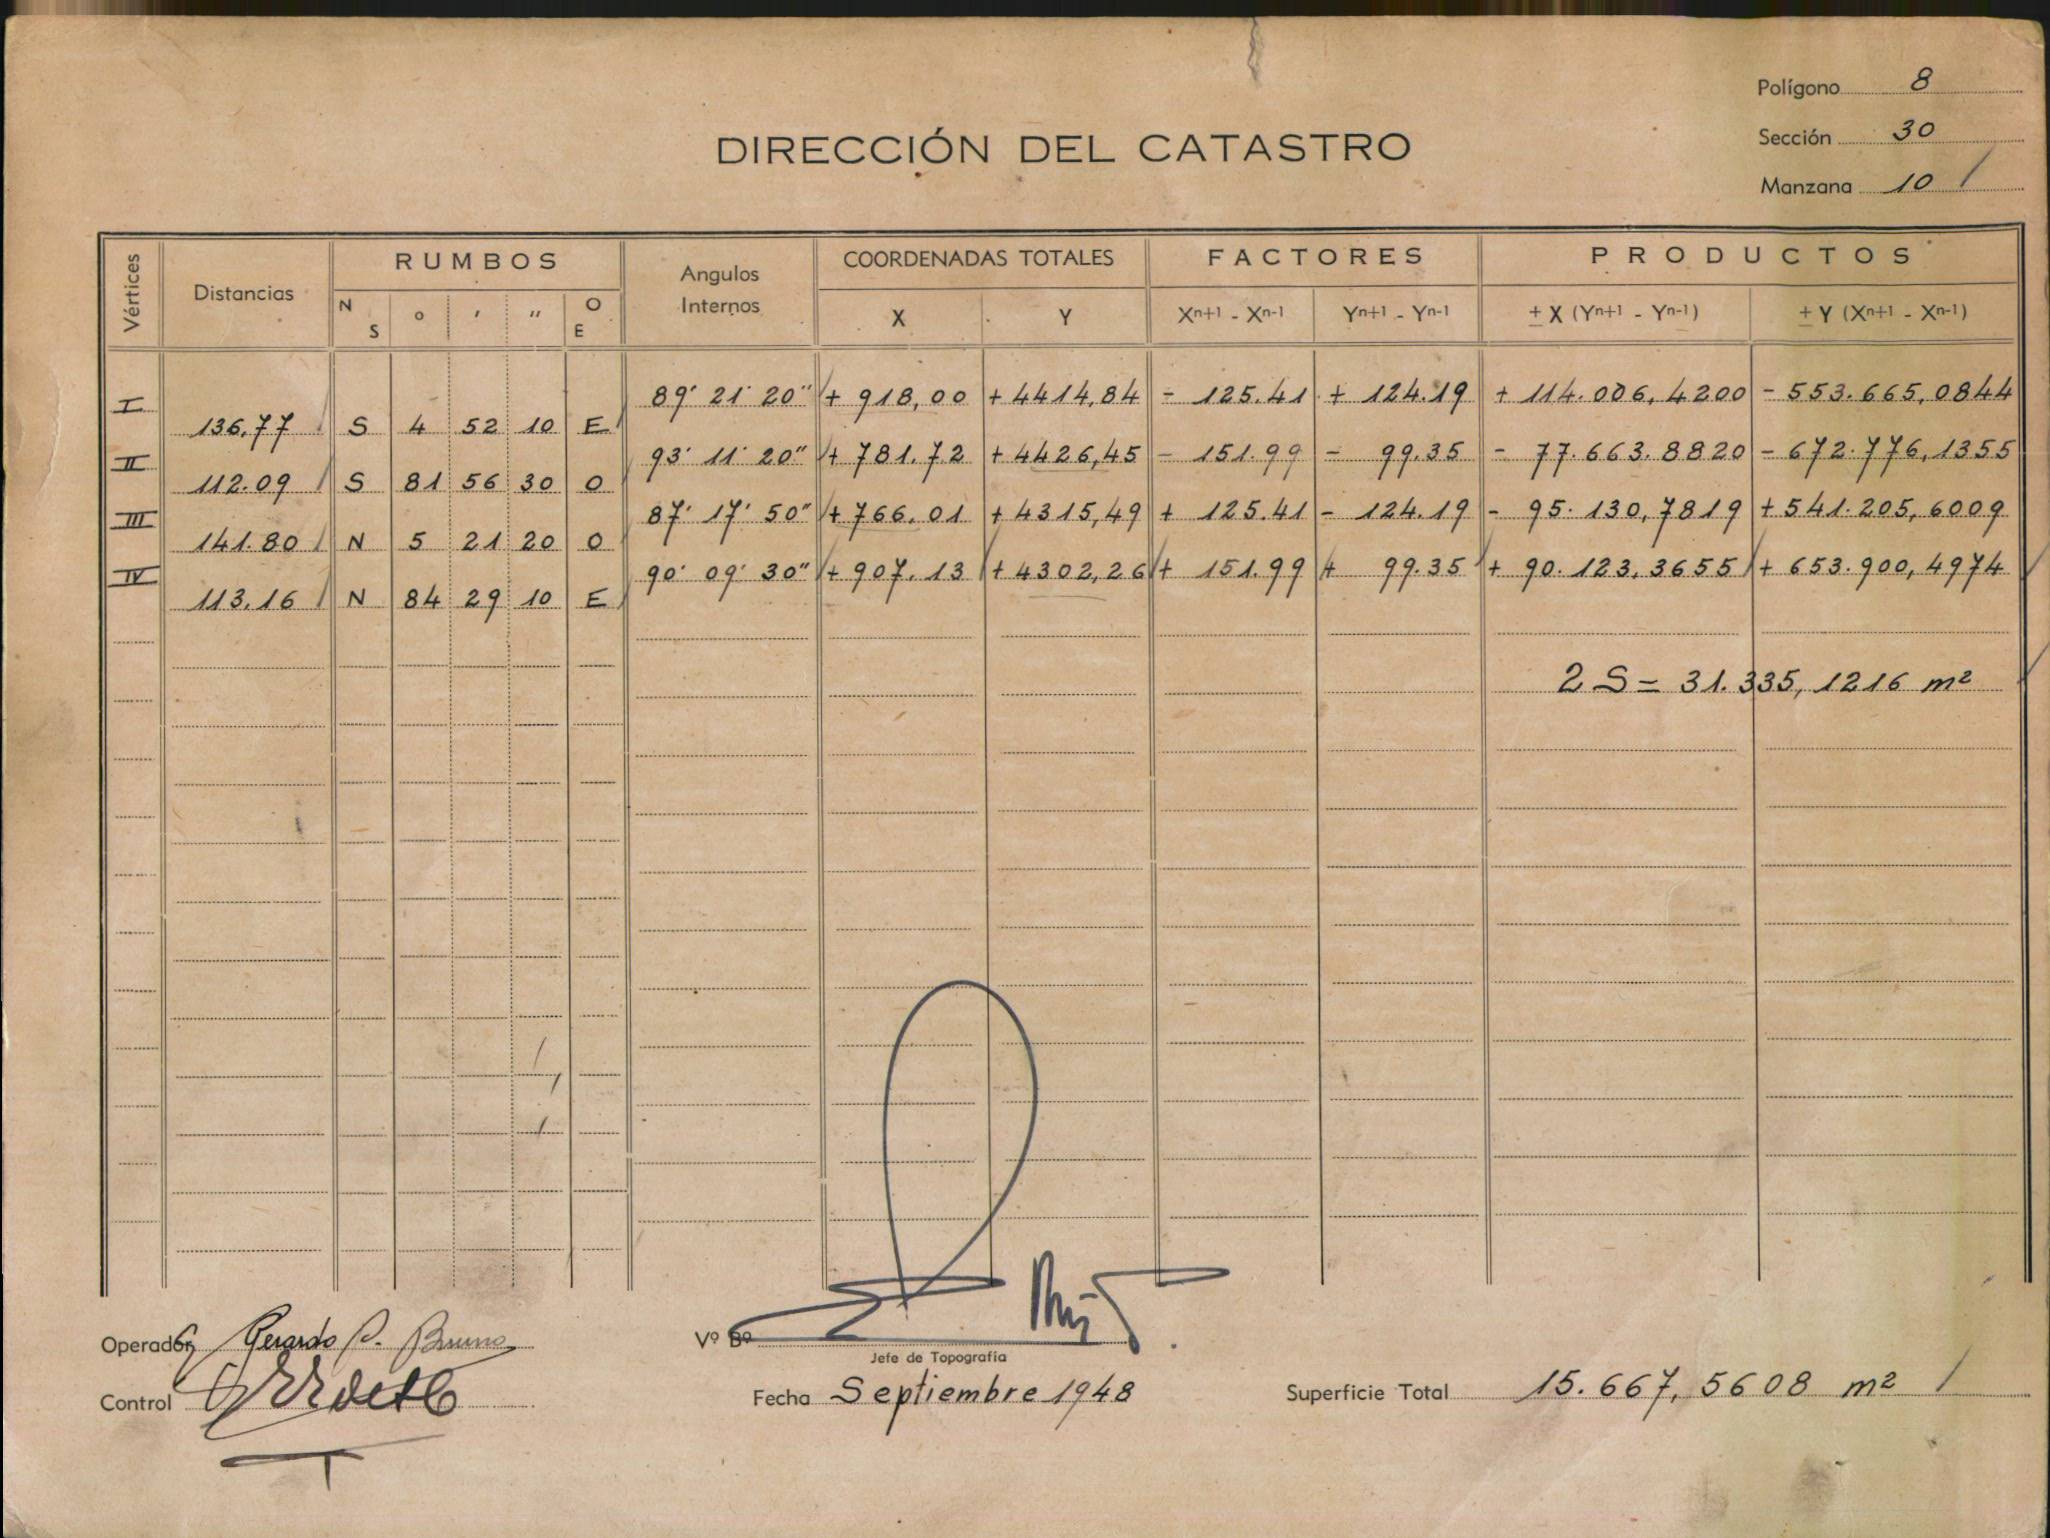 Polígono 8
DIRECCIÓN DEL CATASTRO
Sección 30
Manzana 10 /
Vértices Distancias RUMBOS Angulos Internos COORDENADAS TOTALES FACTORES PRODUCTOS
N S ° ' " O E X Y Xⁿ⁺¹ - Xⁿ⁻¹ Yⁿ⁺¹ - Yⁿ⁻¹ ± X (Yⁿ⁺¹ - Yⁿ⁻¹) ± Y (Xⁿ⁺¹ - Xⁿ⁻¹)
I 89° 21' 20" + 918,00 + 4414,84 - 125.41 + 124.19 + 114.006,4200 - 553.665,0844
136,77 S 4 52 10 E
II 93° 11' 20" + 781.72 + 4426,45 - 151.99 - 99.35 - 77.663.8820 - 672.776,1355
112.09 S 81 56 30 O
III 87° 17' 50" + 766.01 + 4315,49 + 125.41 - 124.19 - 95.130,7819 + 541.205,6009
141.80 N 5 21 20 O
IV 90° 09' 30" + 907.13 + 4302,26 + 151.99 + 99.35 + 90.123,3655 + 653.900,4974
113,16 N 84 29 10 E
2 S = 31.335,1216 m²
Operador Gerardo P. Bruno
Vº Bº
Jefe de Topografía
Control
Fecha Septiembre 1948
Superficie Total 15.667,5608 m² /